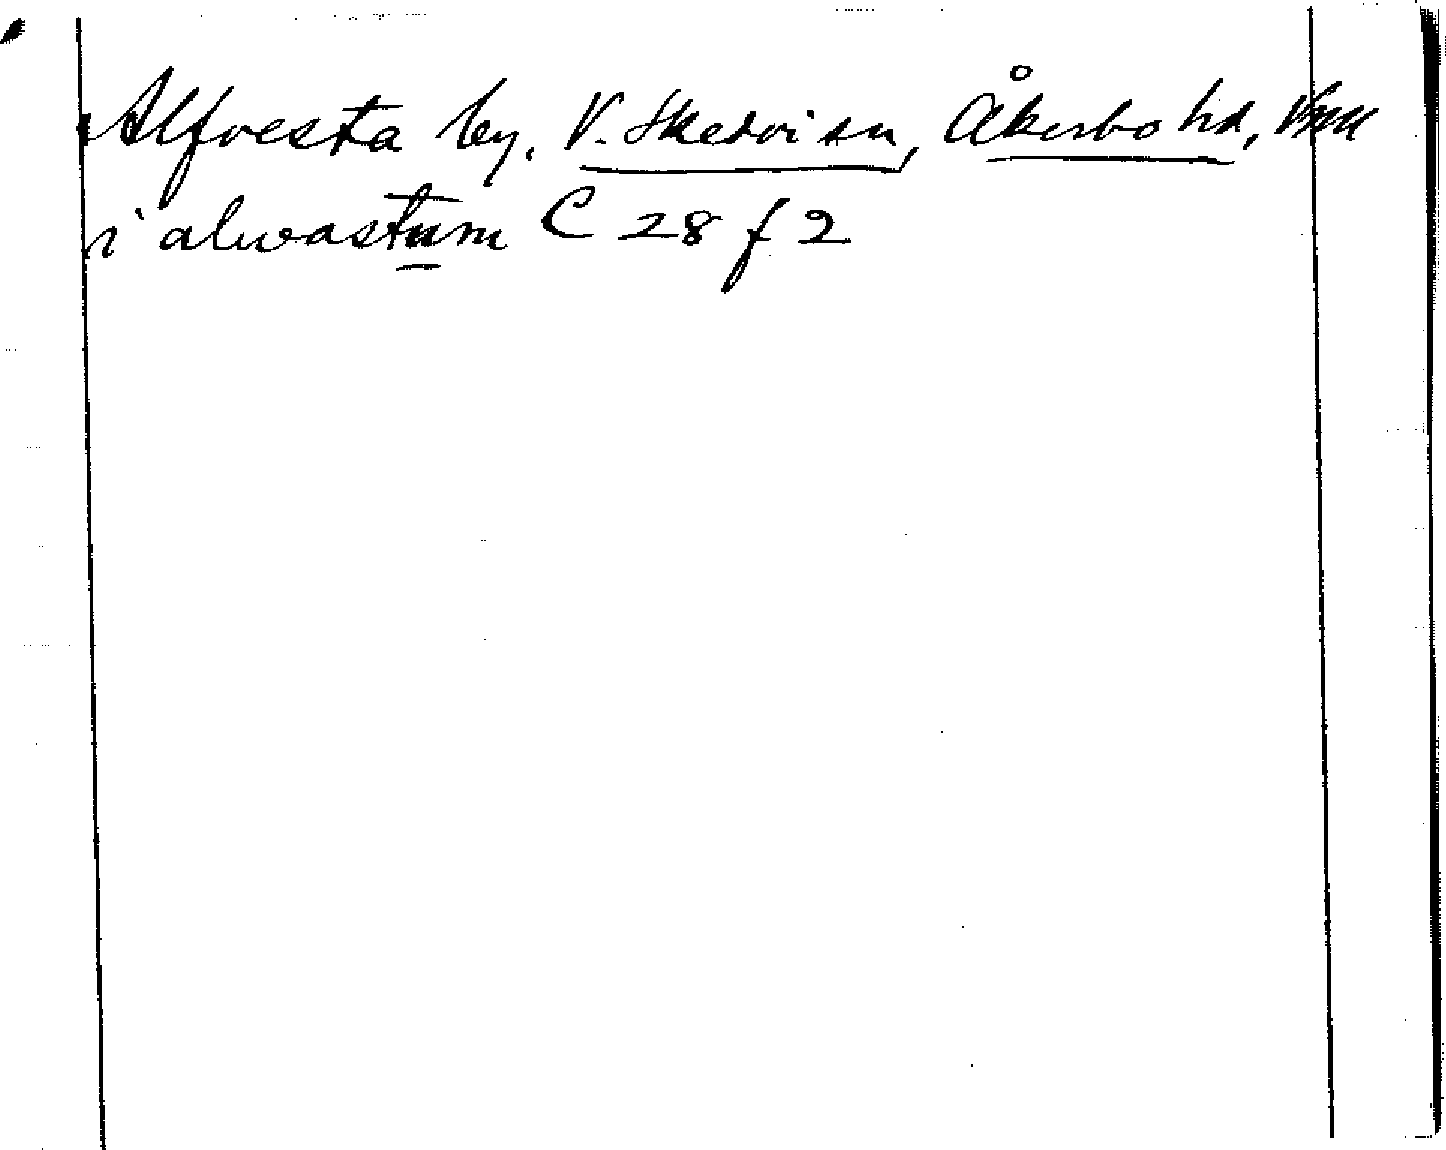 Alfvesta by, V. Skedvi sn, Åkerbo hd, Vml
i alwastum C 28 f 2